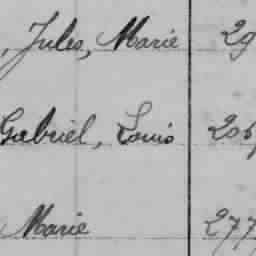 , Jules, Marie 29
Gabriel, Louis 205
Marie 277